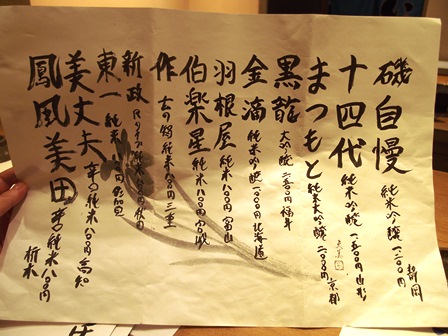 磯自慢 純米吟醸 一二〇〇円 静岡
十四代 純米吟醸 一五〇〇円 山形
まつもと 純米大吟醸 一二〇〇円 京都
黒龍 大吟醸 一二五〇円 福井
金滴 純米吟醸 一〇〇〇円 北海道
羽根屋 純米 八〇〇円 富山
伯楽星 純米 八〇〇円 宮城
作 純米 八〇〇円 三重
新政 純米 八〇〇円 秋田
東一 純米 八〇〇円 佐賀
美丈夫 辛口純米 八〇〇円 高知
鳳凰美田 辛口純米 八〇〇円 栃木